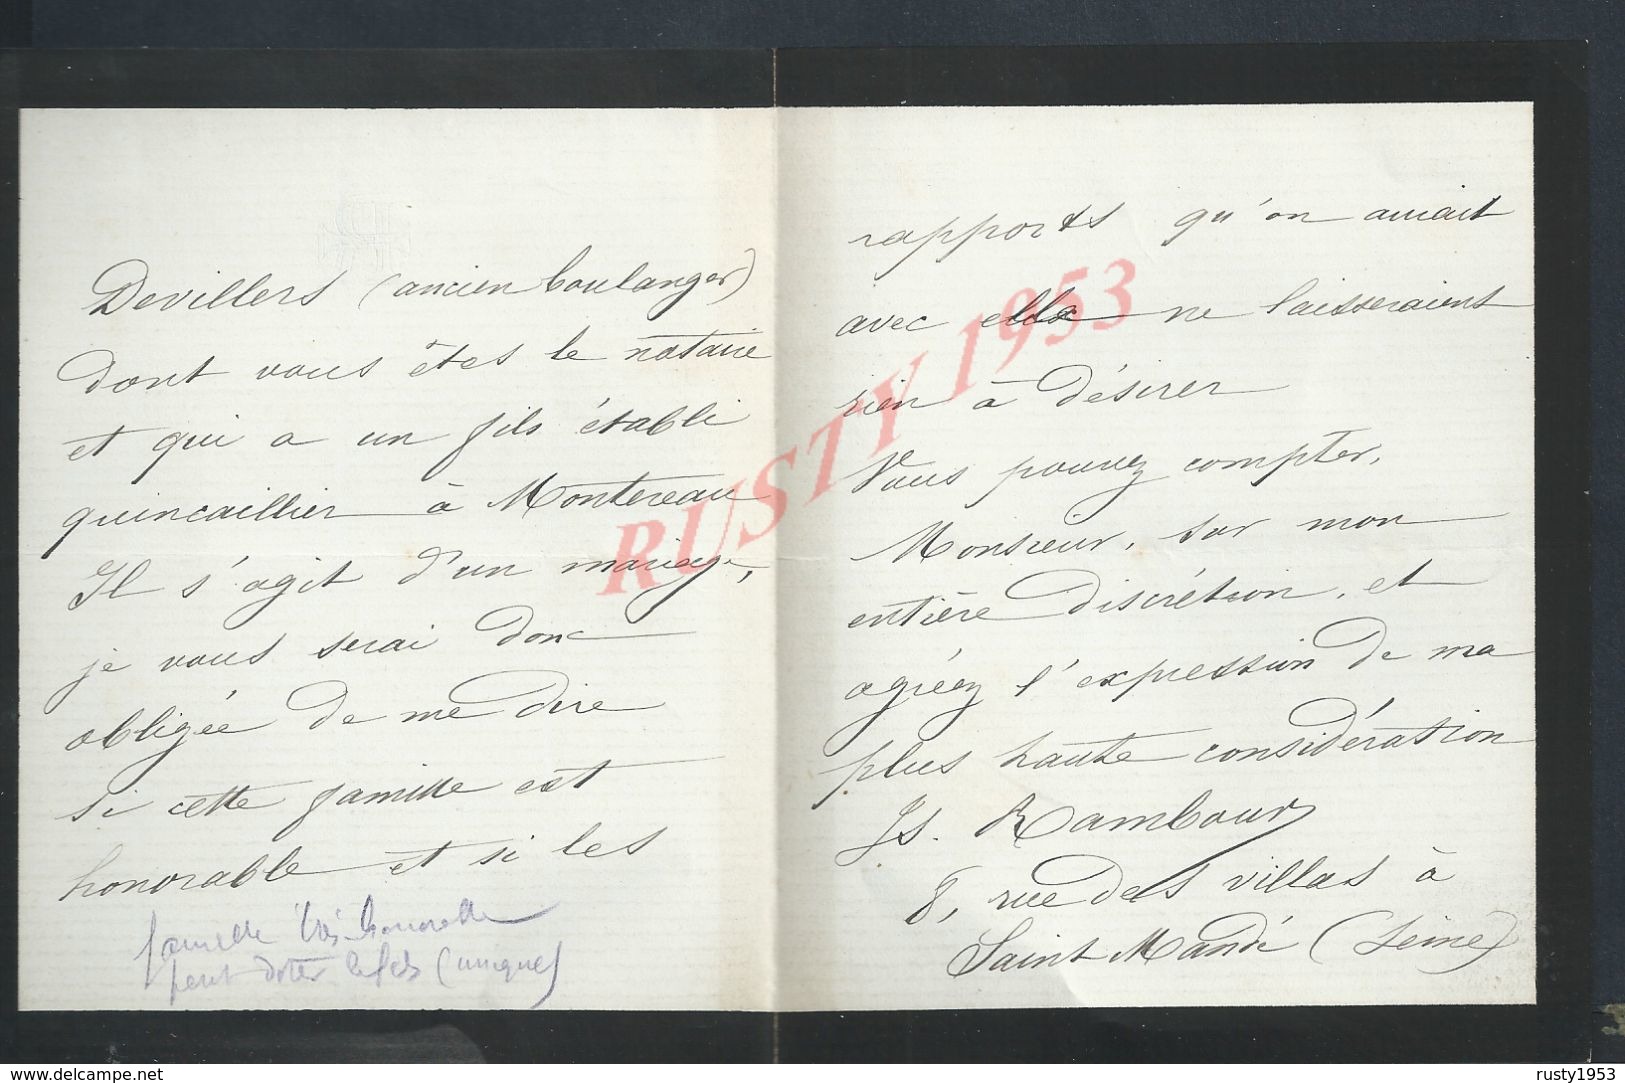 Devillers (ancien boulanger)
dont vous êtes le notaire
et qui a un fils établi
quincaillier à Montereau
Il s'agit d'un mariage,
je vous serai donc
obligée de me dire
si cette famille est
honorable et si les
famille très honorable
peut doter le fils (unique)
rapports qu'on aurait
avec elle ne laisseraient
rien à désirer
Vous pouvez compter,
Monsieur, sur mon
entière discrétion, et
agréez l'expression de ma
plus haute considération
Js. Rambour
8, rue des villas à
Saint Mandé (Seine)
RUSTY 1953
www.delcampe.net
rusty1953